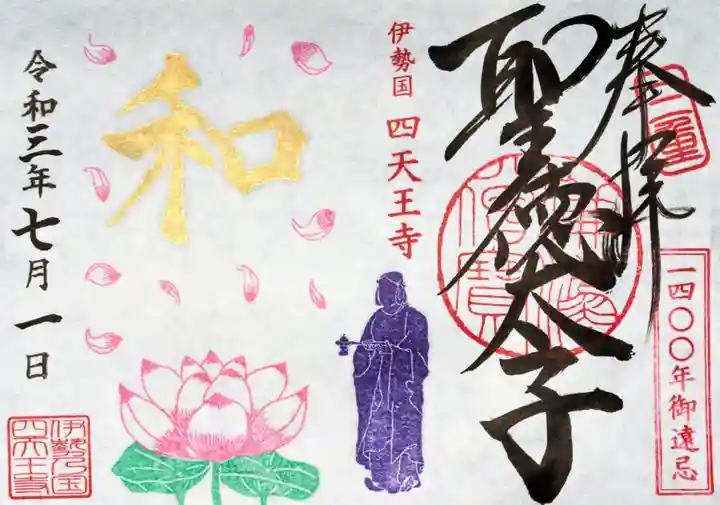 奉拝
三重
一四〇〇年御遠忌
聖徳太子
佛法僧寶
伊勢国 四天王寺
和
令和三年七月一日
伊勢乃国
四天王寺